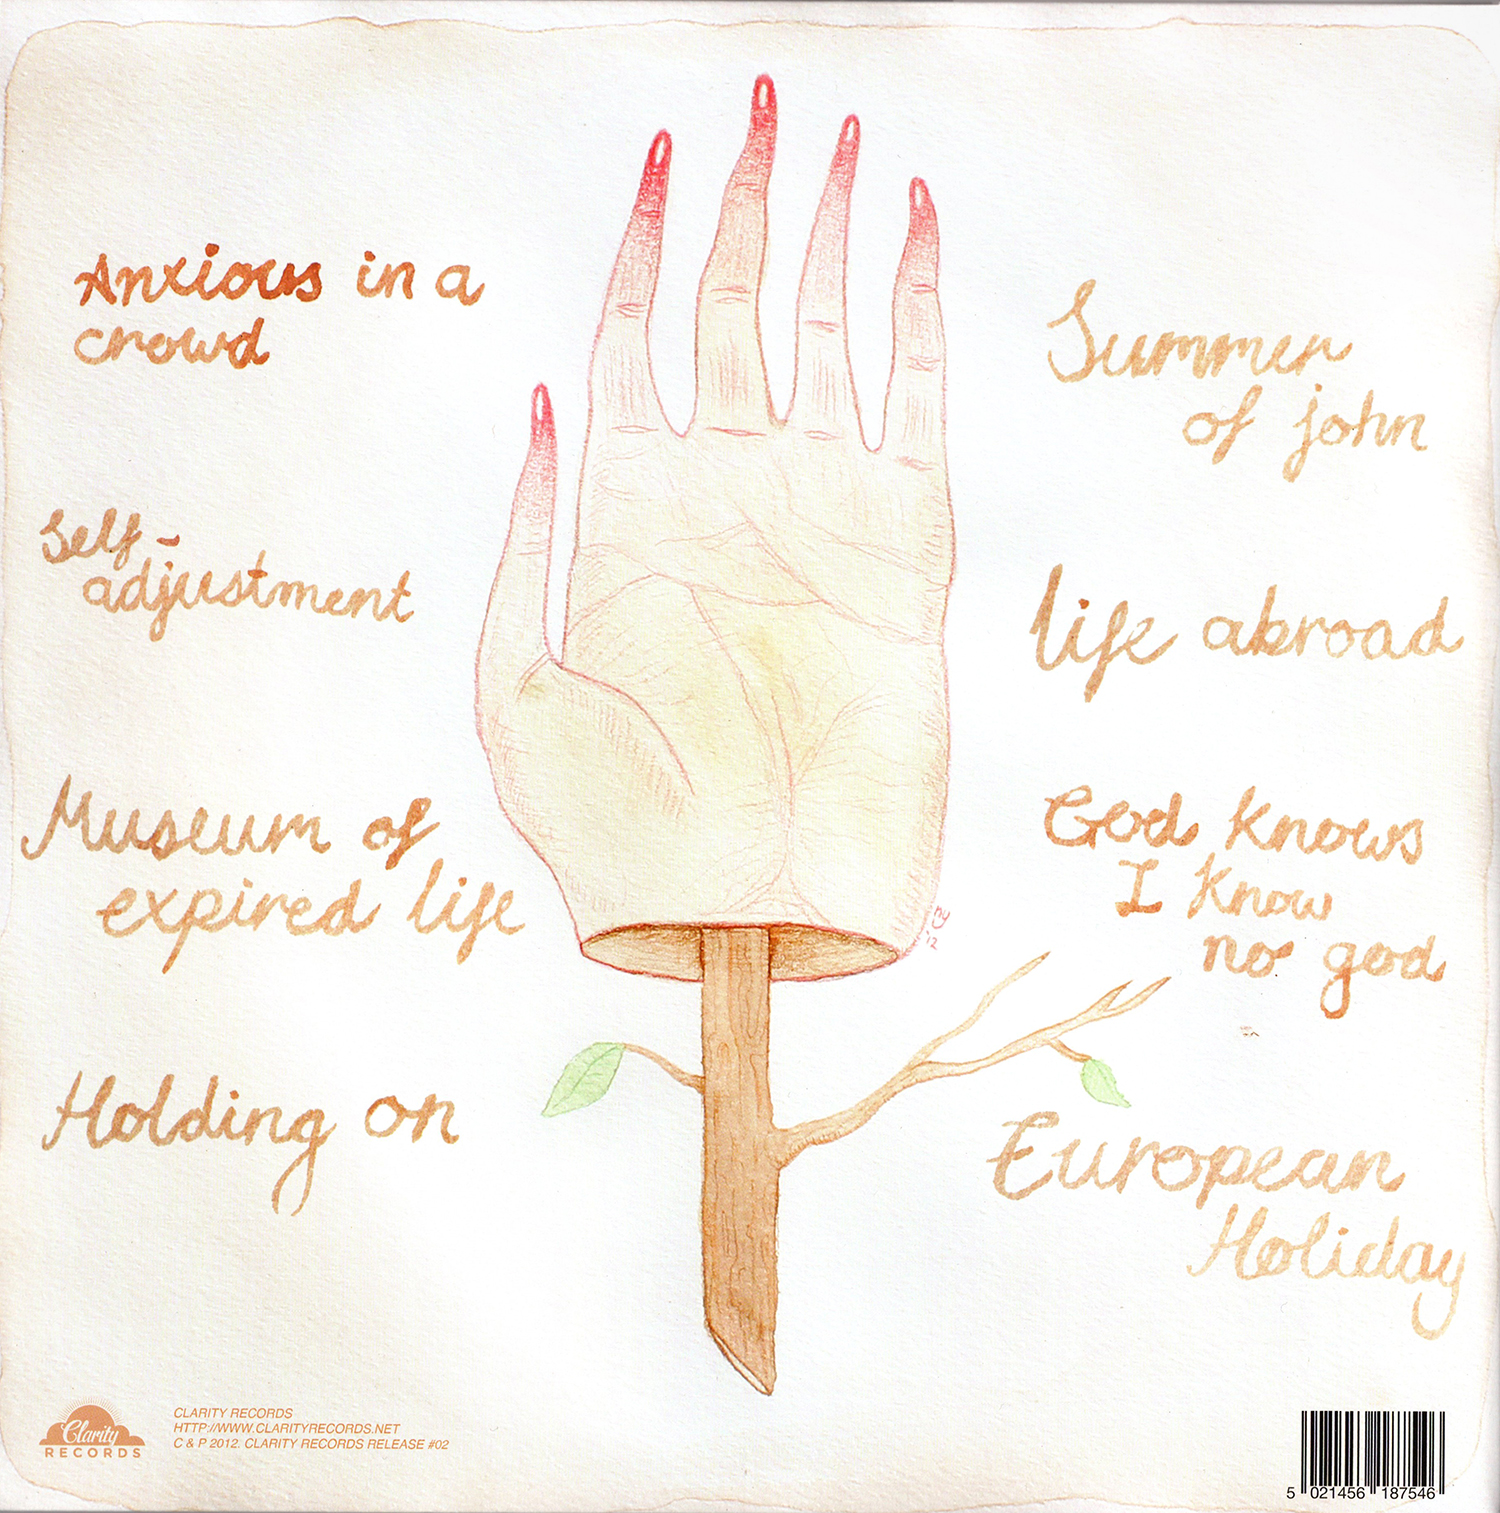 Anxious in a
crowd
Self-
adjustment
Museum of
expired life
Holding on
Summer
of john
life abroad
God knows
I know
no god
European
Holiday
Clarity
RECORDS
CLARITY RECORDS
HTTP://WWW.CLARITYRECORDS.NET
C & P 2012. CLARITY RECORDS RELEASE #02
5 021456 187546